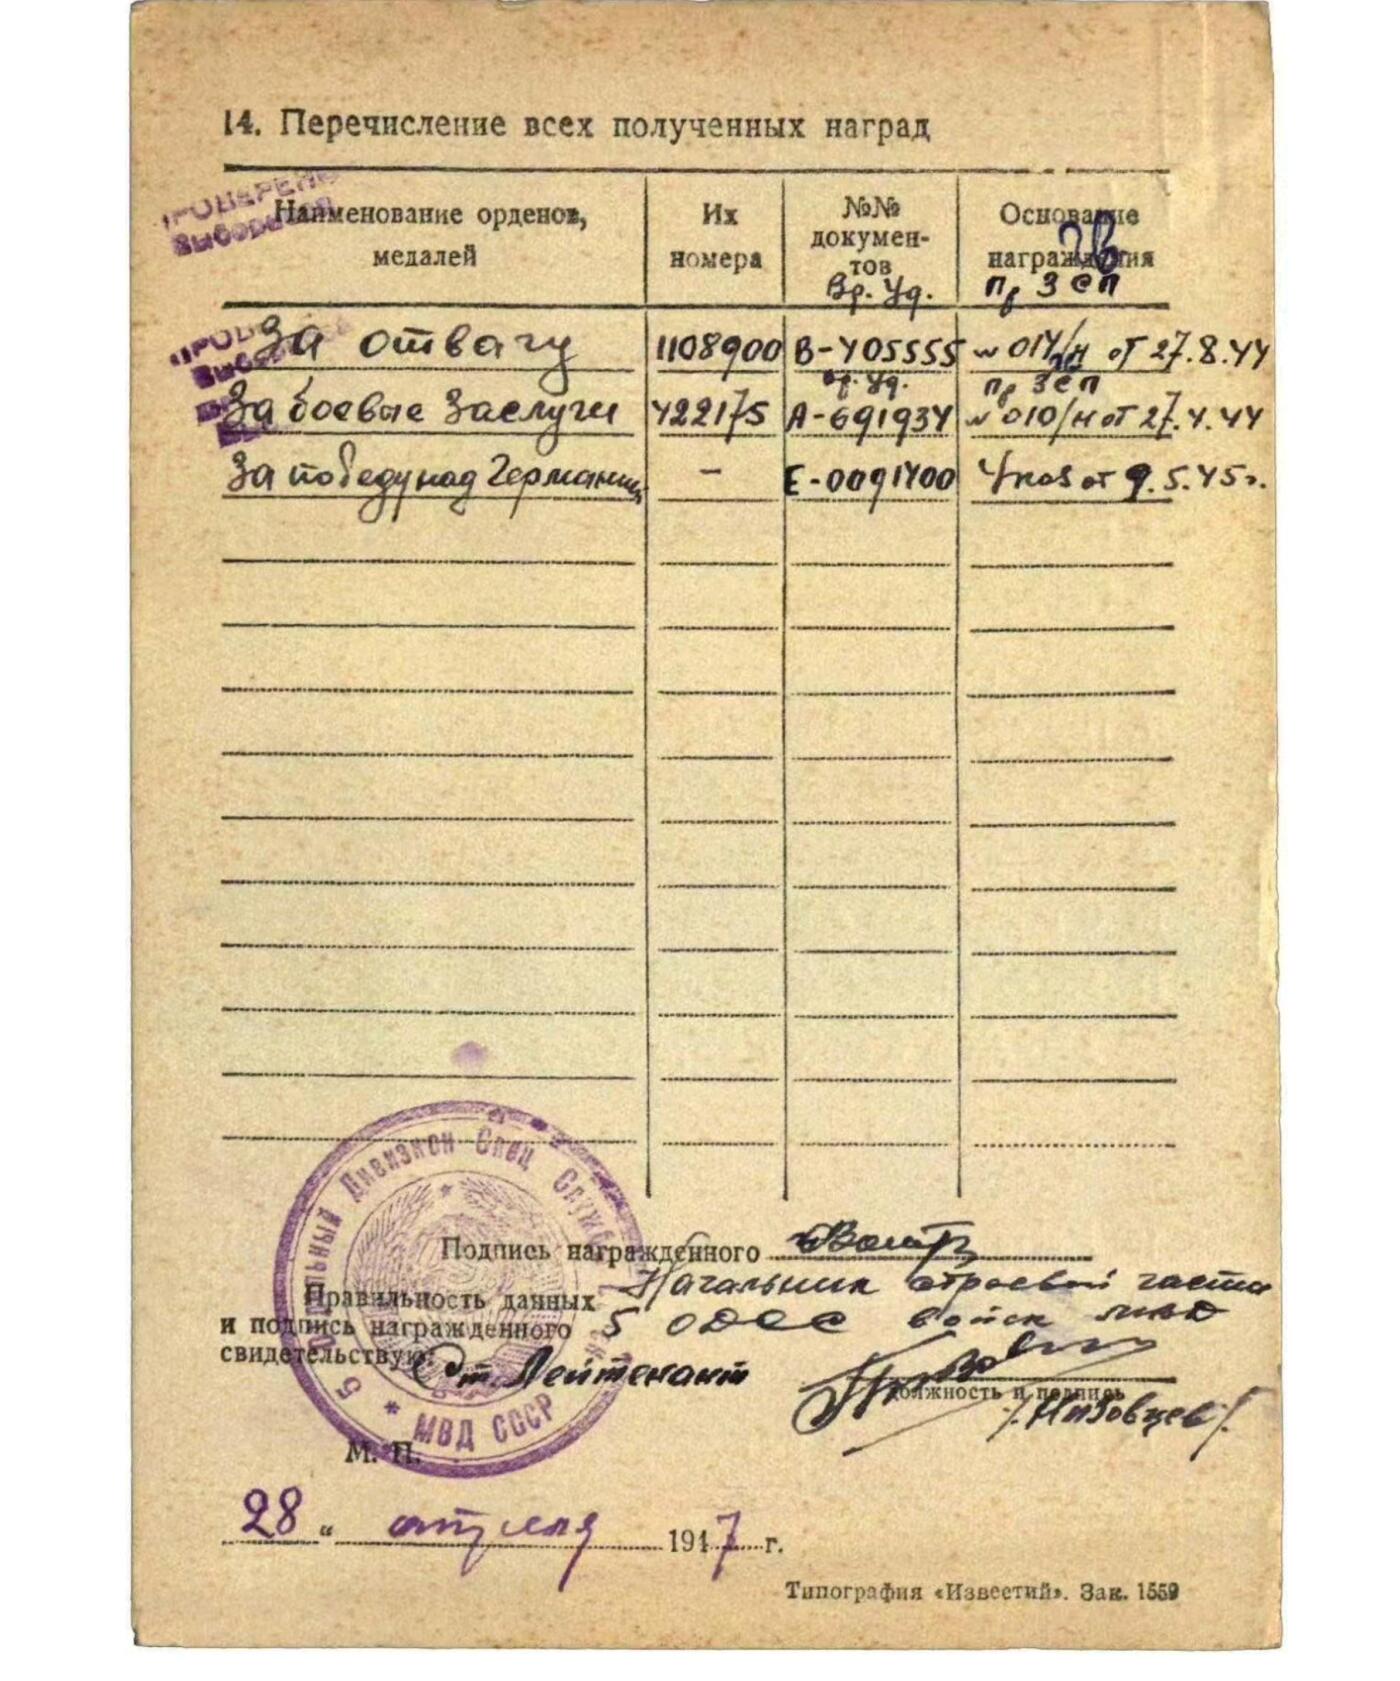 14. Перечисление всех полученных наград
Наименование орденов, медалей
Их номера
№№ документов
Основание награждения
Вр. Уд.
Пр ЗСП
За отвагу 1108900 В-405555 № 014/н от 27.8.44
Вр. Уд.
Пр ЗСП
За боевые заслуги 422175 А-691934 № 010/н от 27.4.44
За победу над Германией - Е-0091400 Указ от 9.5.45г.
Подпись награжденного
Начальник строевой части
Правильность данных
и подпись награжденного
5 ОДСС войск МВД
свидетельствую:
Ст. Лейтенант
должность и подпись
/Низовцев/
М. П.
Дивизион Спец Служб
5
* МВД СССР
28 " апреля 1947 г.
Типография «Известий». Зак. 1559